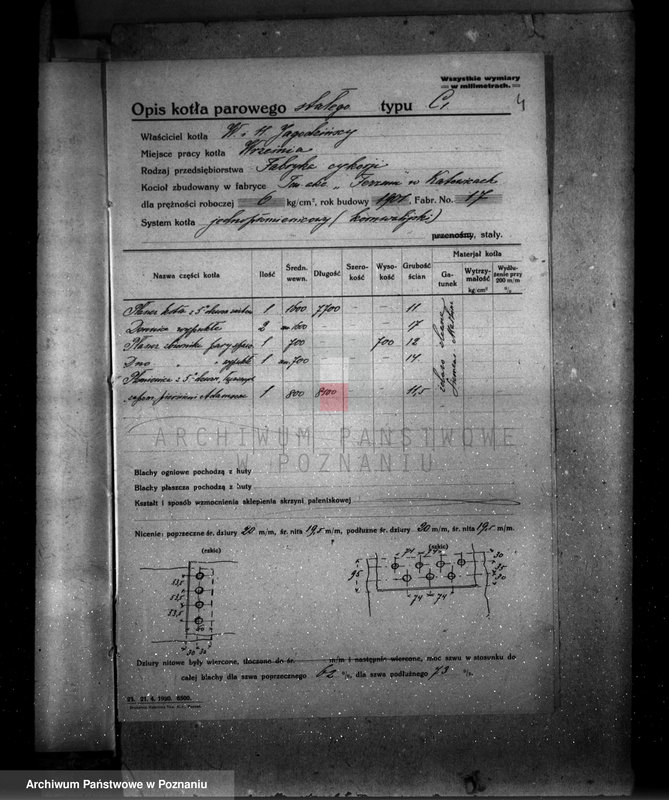 Wszystkie wymiary
w milimetrach.
Opis kotła parowego stałego typu C, 4
Właściciel kotła W. i H. Jagodzińscy
Miejsce pracy kotła Września
Rodzaj przedsiębiorstwa Fabryka cykorji
Kocioł zbudowany w fabryce "Ferrum" w Katowicach
dla prężności roboczej 6 kg/cm², rok budowy 1901, Fabr. No. 17
System kotła jednopłomienicowy (kornwalijski)
przenośny, stały.
Nazwa części kotła Ilość Średn. wewn. Długość Szerokość Wysokość Grubość ścian Materjał kotła
Gatunek Wytrzymałość kg/cm² Wydłużenie przy 200 m/m %
Płaszcz kotła z 5 1 1600 7700 - - 11
Dennice wypukłe 2 1600 - - - 17
Płaszcz zbiornika pary 1 700 - - 700 12
Dno " " wypukłe 1 700 - - - 14
Płomienica z 5
pierścieni Adamsona 1 800 8500 - - 11,5
żelazo zlewne
Siemens Martin
ARCHIWUM PAŃSTWOWE
W POZNANIU
Blachy ogniowe pochodzą z huty
Blachy płaszcza pochodzą z huty
Kształt i sposób wzmocnienia sklepienia skrzyni paleniskowej
Nicenie: poprzeczne śr. dziury 20 m/m, śr. nita 19,5 m/m, podłużne śr. dziury 20 m/m, śr. nita 19,5 m/m.
(szkic) (szkic)
74 74 30
53,5 95 35
53,5 30
53,5 74 74
30 30
Dziury nitowe były wiercone, tłoczone do śr. m/m i następnie wiercone, moc szwu w stosunku do
całej blachy dla szwa poprzecznego 62 %, dla szwa podłużnego 73 %.
23. 21. 4. 1930. 6500.
Archiwum Państwowe w Poznaniu